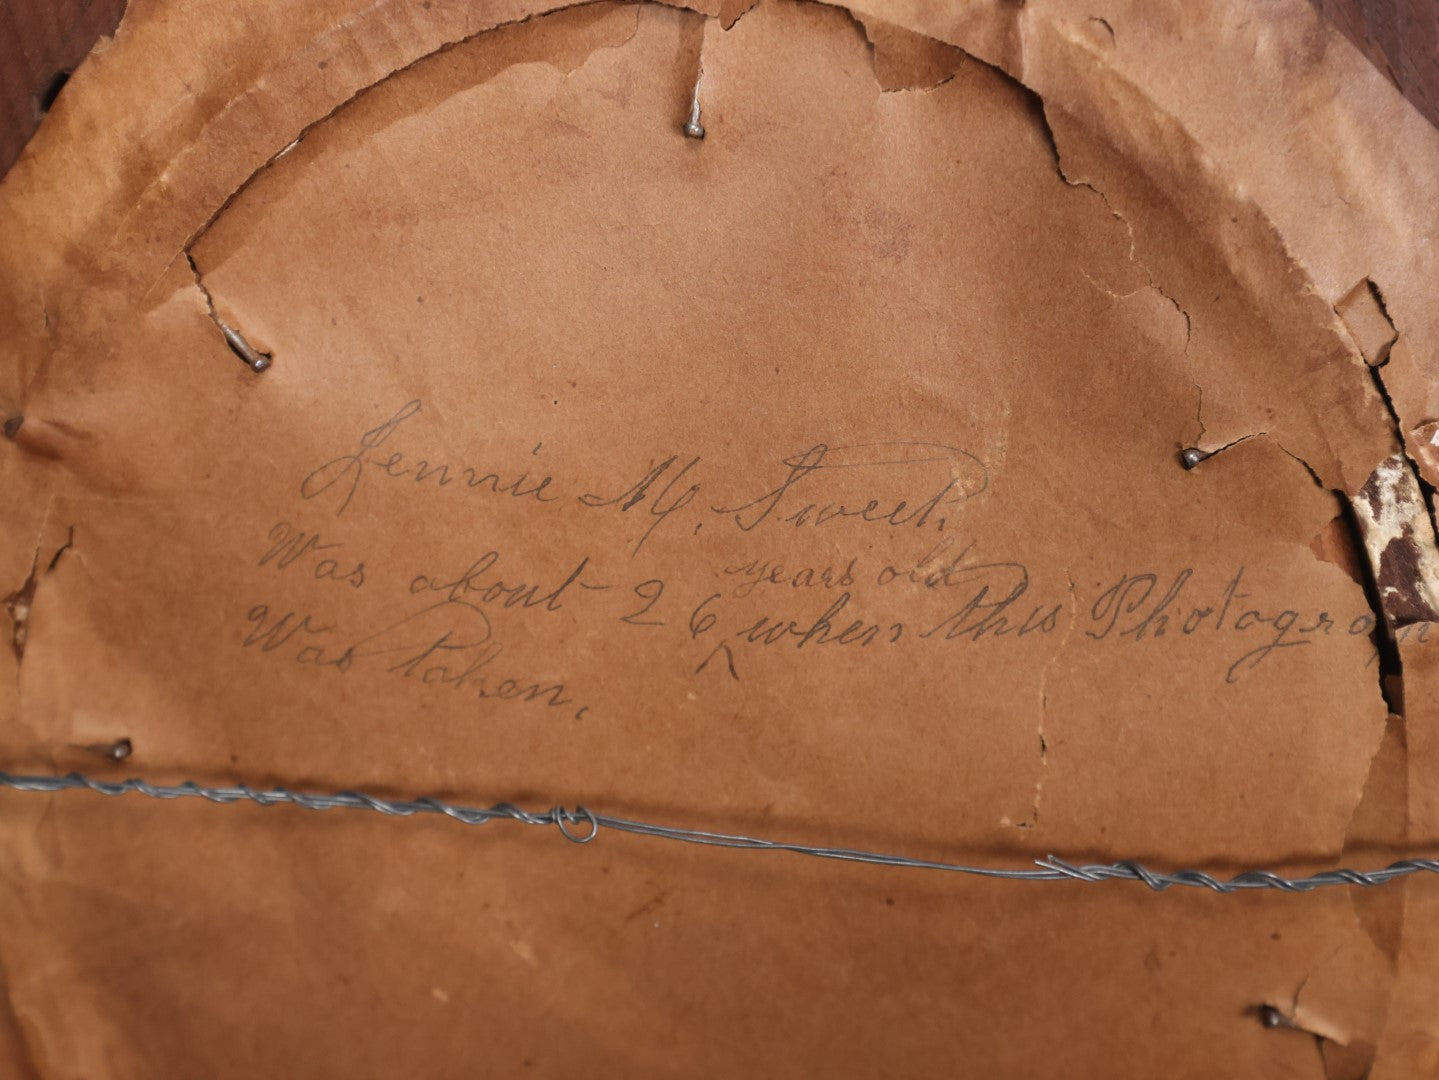 Jennie M. Sweet.
years old
Was about 26 ^ when this Photograph
Was taken.